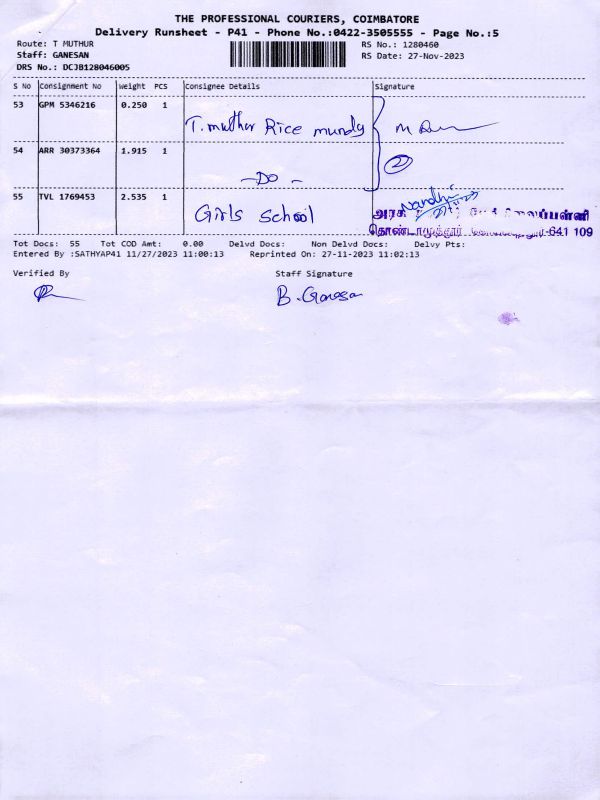 THE PROFESSIONAL COURIERS, COIMBATORE
Delivery Runsheet - P41 - Phone No.:0422-3505555 - Page No.:5
Route: T MUTHUR RS No.: 1280460
Staff: GANESAN RS Date: 27-Nov-2023
DRS No.: DCJB128046005
S No Consignment No Weight PCS Consignee Details Signature
53 GPM 5346216 0.250 1 T.muthur Rice mundy
54 ARR 30373364 1.915 1 -DO- 2
55 TVL 1769453 2.535 1 Girls School Nandhi
அரசு
தொண்டாமுத்தூர் 641 109
Tot Docs: 55 Tot COD Amt: 0.00 Delvd Docs: Non Delvd Docs: Delvy Pts:
Entered By :SATHYAP41 11/27/2023 11:00:13 Reprinted On: 27-11-2023 11:02:13
Verified By Staff Signature
B. Ganesa